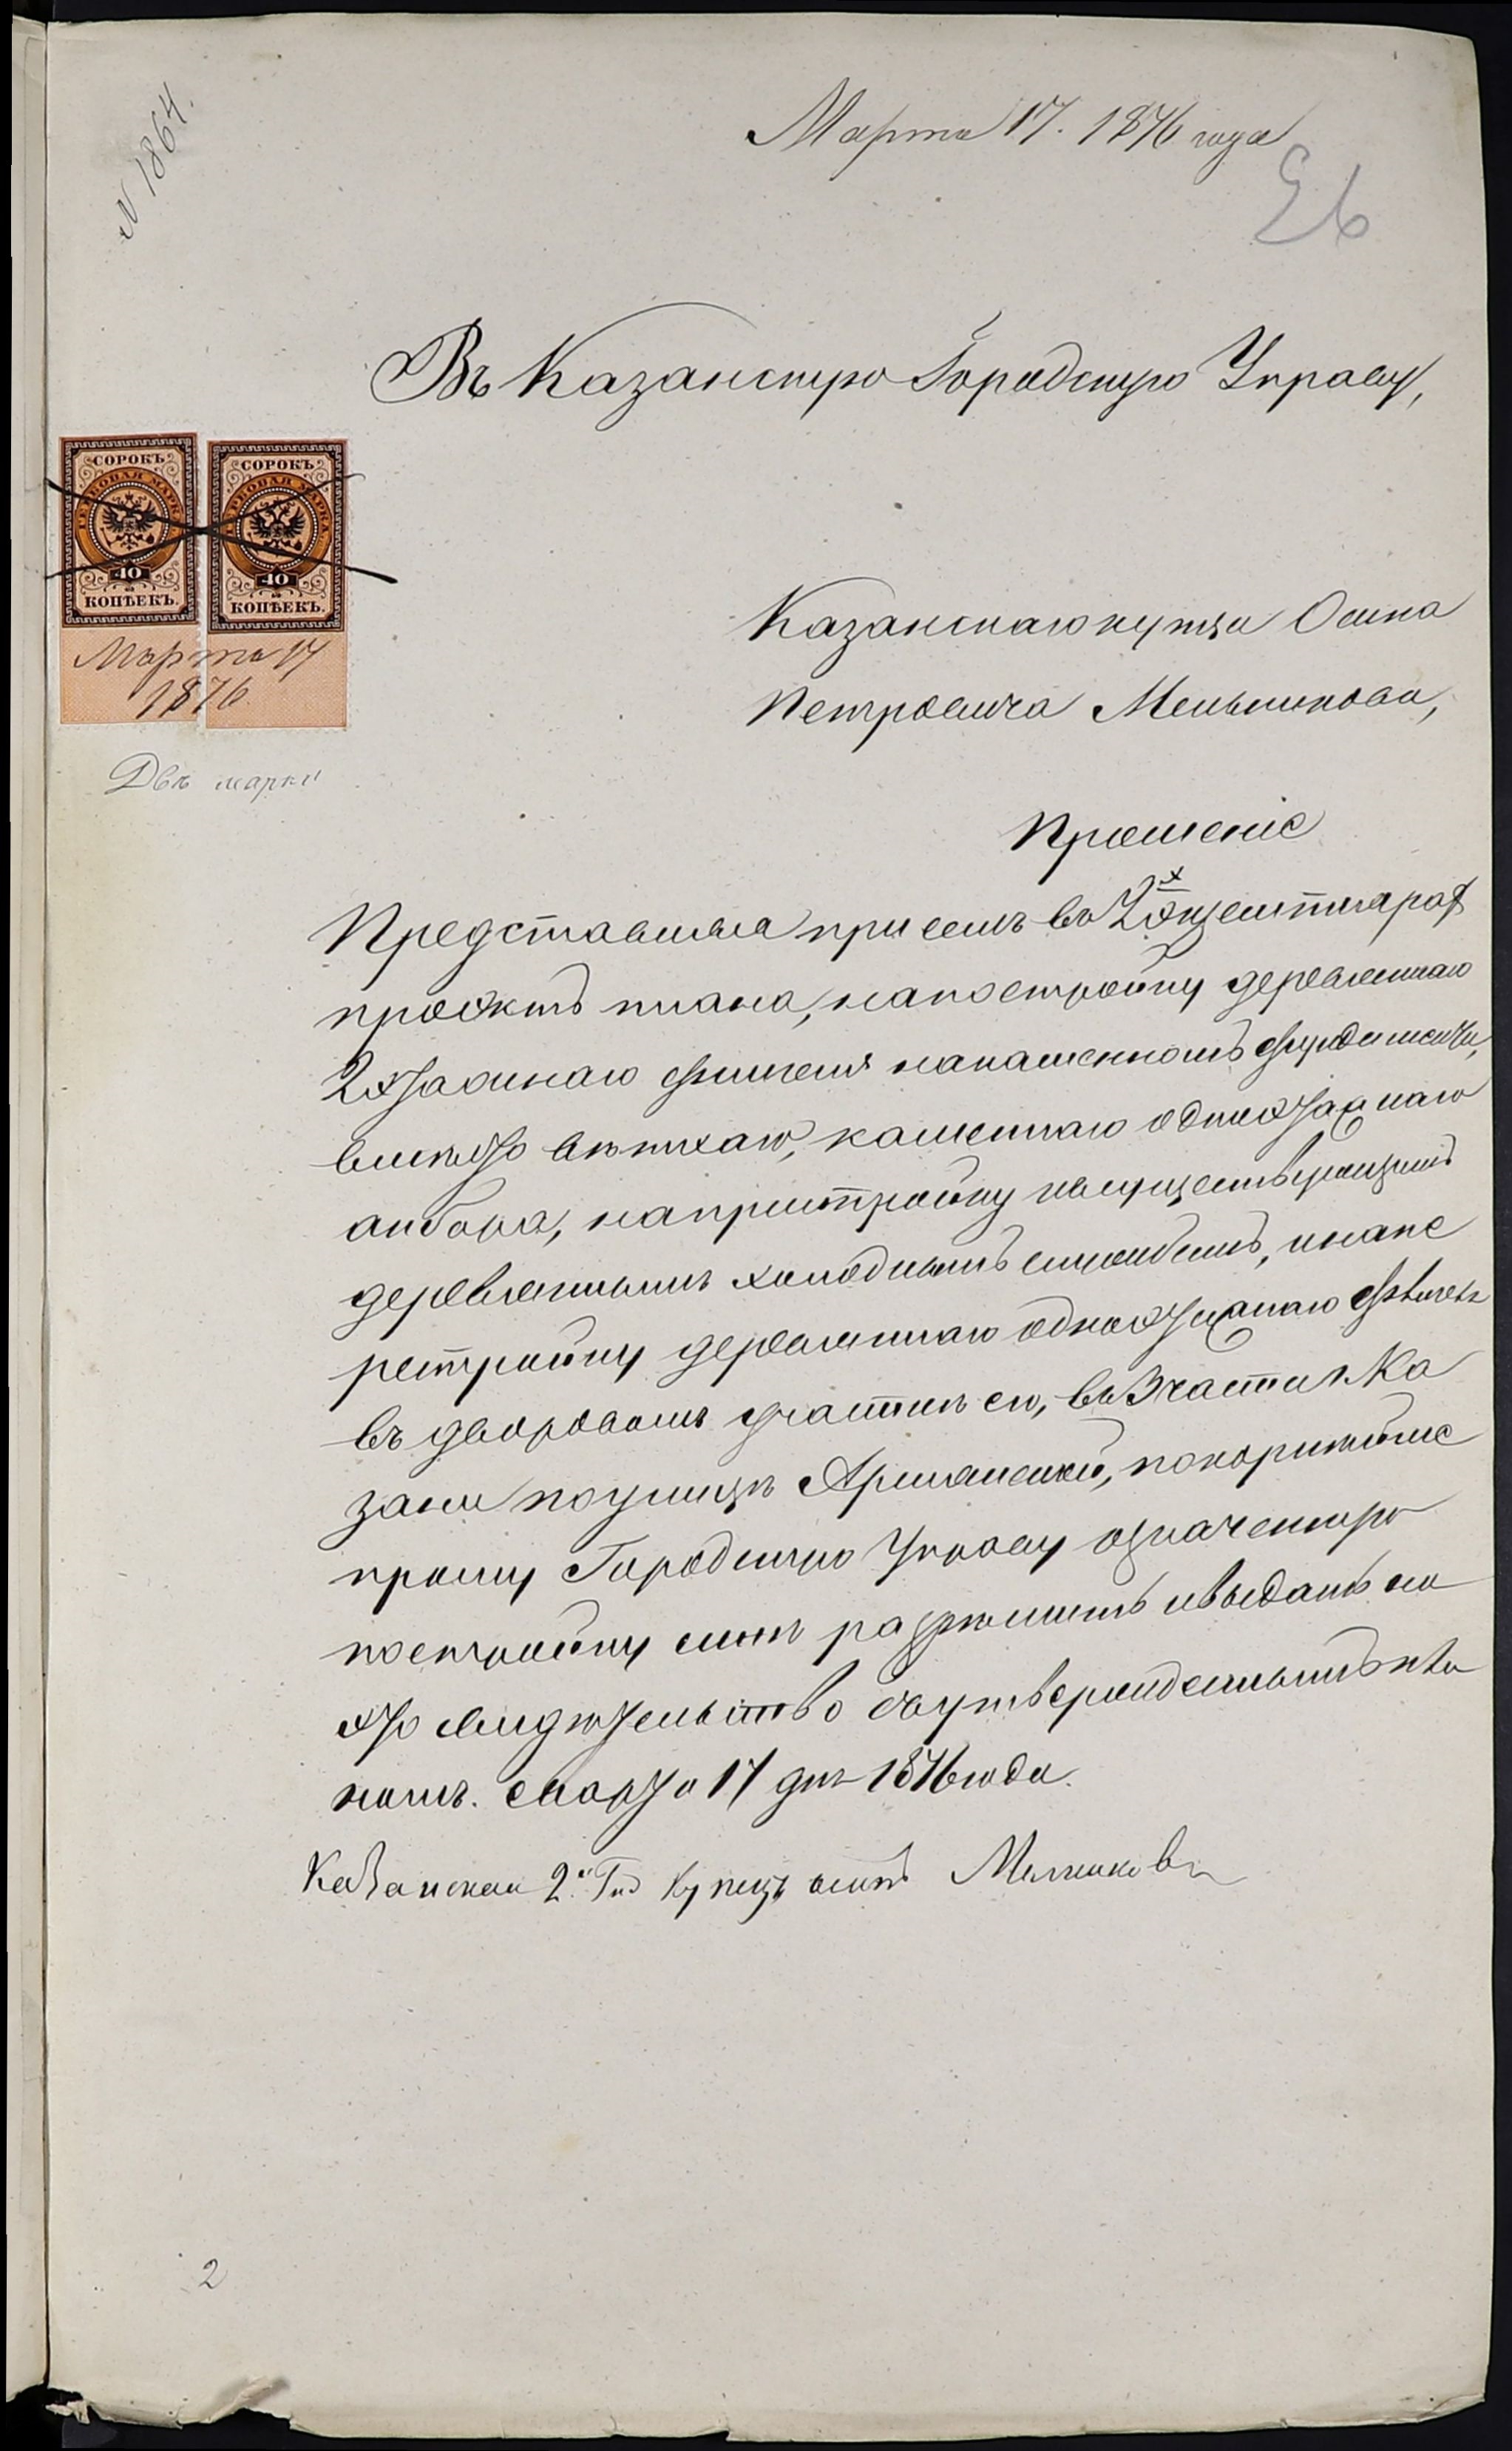 N 1864.
Марта 17. 1876 года
Въ Казанскую Городскую Управу,
СОРОКЪ
ГЕРБОВАЯ МАРКА
40
КОПѢЕКЪ.
СОРОКЪ
ГЕРБОВАЯ МАРКА
40
КОПѢЕКЪ.
Марта 17
1876
Двѣ марки
Казанскаго купца Осипа
Петровича Мельникова,
Прошеніе
Представляя при семъ въ 2х
проэктъ плана, на постройку деревяннаго
2хэтажнаго флигеля на каменномъ фундаментѣ,
вмѣсто ветхаго, каменнаго одноэтажнаго
анбара, на пристройку къ существующимъ
деревяннымъ холоднымъ службамъ, и на пе
рестройку деревяннаго одноэтажнаго флигеля
въ дворовомъ участкѣ его, въ 3 части г. Ка
зани по улицѣ Армянской, покорнѣйше
прошу Городскую Управу означенную
постройку мнѣ разрѣшить и выдать на
это свидѣтельство съ утвержденнымъ пла
номъ. Марта 17 дня 1876 года.
Казанской 2й Гил купецъ осипъ Мелников
2